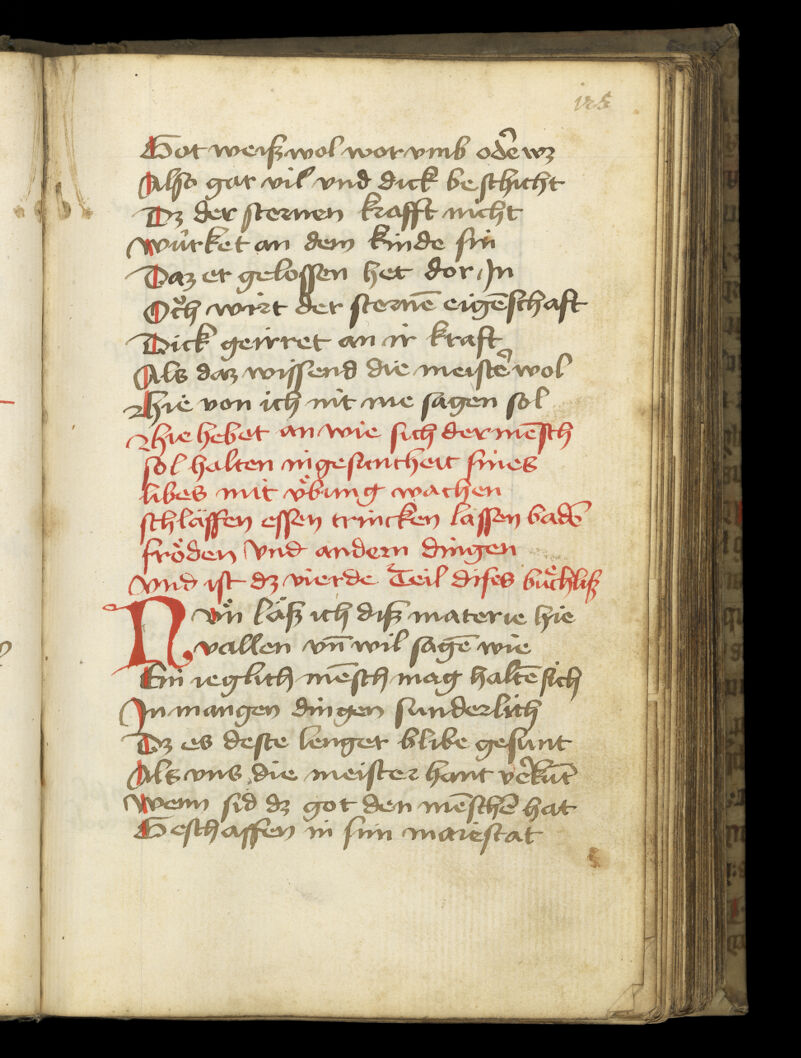 125
Got weiß wol wor vmb oder wz
Also gar vil vnd dick beschicht
Dz der sternen krafft nicht
Würket an dem kinde sin
Daz er gelossen het dor jn
Och wirt der sternē eigēschaft
Dick geirret an ir kraft
Als daz wissend die meister wol
Hie von ich nit me sagen sol
Hie hebet an wie sich der mēsch
sol halten in gesuntheit sines
libes mit v̊bung wachen
schläffen essen trincken lässen badē
fröden vnd andern dingen
Vnd ist dz vierde Teil dises bůchliß
Nvn läß ich diß materie hie
vallen vn̄ wil sagē wie
Ein ieglich mēsch mag haltē sich
In mangen dingen sunderlich
Dz es deste lenger blibe gesunt
Als vns die meister hant verkūt
Wenn sid dz got den mēschē hat
Geschaffen in sinr maiestat